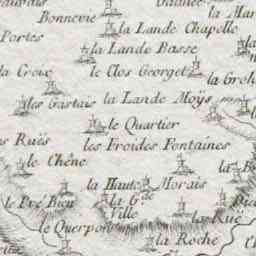 Bonnevie
la Lande Chapelle
Portes
la Lande Basse
la Croix
le Clos Georget
les Gastais
la Lande Moÿs
le Quartier
Ruës
les Froides Fontaines
le Chêne
la Haute
Morais
le Pré Bieu
la Gde
Ville
la Ruë
le Querpon
la Roche